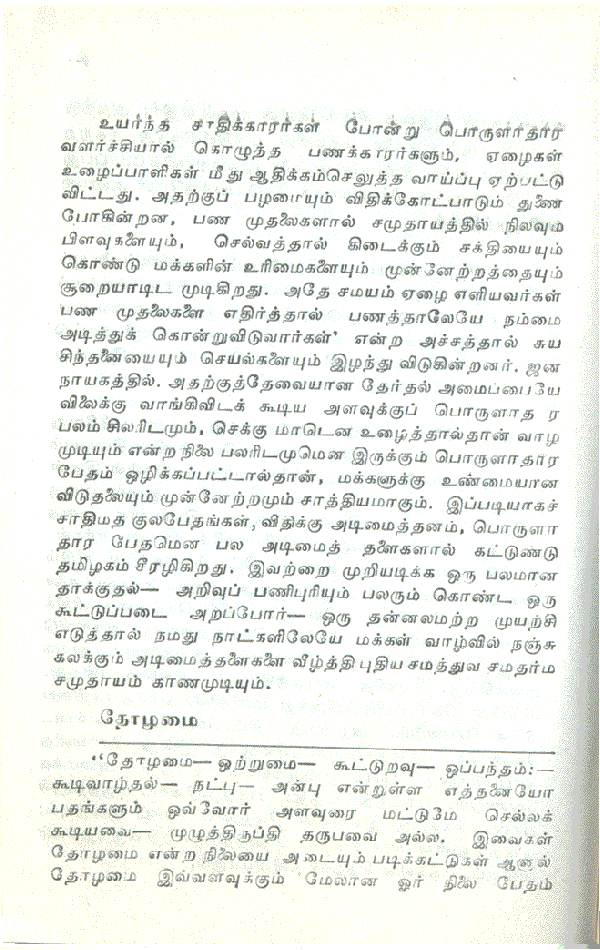 உயர்ந்த சாதிக்காரர்கள் போன்று பொருளாதார
வளர்ச்சியால் கொழுத்த பணக்காரர்களும், ஏழைகள்
உழைப்பாளிகள் மீது ஆதிக்கம்செலுத்த வாய்ப்பு ஏற்பட்டு
விட்டது. அதற்குப் பழமையும் விதிக்கோட்பாடும் துணை
போகின்றன, பண முதலைகளால் சமுதாயத்தில் நிலவும்
பிளவுகளையும், செல்வத்தால் கிடைக்கும் சக்தியையும்
கொண்டு மக்களின் உரிமைகளையும் முன்னேற்றத்தையும்
சூறையாடிட முடிகிறது. அதே சமயம் ஏழை எளியவர்கள்
பண முதலைகளை எதிர்த்தால் பணத்தாலேயே நம்மை
அடித்துக் கொன்றுவிடுவார்கள்' என்ற அச்சத்தால் சுய
சிந்தனையையும் செயல்களையும் இழந்து விடுகின்றனர். ஜன
நாயகத்தில். அதற்குத்தேவையான தேர்தல் அமைப்பையே
விலைக்கு வாங்கிவிடக் கூடிய அளவுக்குப் பொருளாத ர
பலம் சிலரிடமும், செக்கு மாடென உழைத்தால்தான் வாழ
முடியும் என்ற நிலை பலரிடமுமென இருக்கும் பொருளாதார
பேதம் ஒழிக்கப்பட்டால்தான், மக்களுக்கு உண்மையான
விடுதலையும் முன்னேற்றமும் சாத்தியமாகும். இப்படியாகச்
சாதிமத குலபேதங்கள், விதிக்கு அடிமைத்தனம், பொருளா
தார பேதமென பல அடிமைத் தளைகளால் கட்டுண்டு
தமிழகம் சீரழிகிறது. இவற்றை முறியடிக்க ஒரு பலமான
தாக்குதல்— அறிவுப் பணிபுரியும் பலரும் கொண்ட ஒரு
கூட்டுப்படை அறப்போர்— ஒரு தன்னலமற்ற முயற்சி
எடுத்தால் நமது நாட்களிலேயே மக்கள் வாழ்வில் நஞ்சு
கலக்கும் அடிமைத்தளைகளை வீழ்த்தி புதிய சமத்துவ சமதர்ம
சமுதாயம் காணமுடியும்.
தோழமை
“தோழமை— ஒற்றுமை— கூட்டுறவு— ஒப்பந்தம்:—
கூடிவாழ்தல்— நட்பு— அன்பு என்றுள்ள எத்தனையோ
பதங்களும் ஒவ்வோர் அளவுரை மட்டுமே செல்லக்
கூடியவை— முழுத்திருப்தி தருபவை அல்ல. இவைகள்
தோழமை என்ற நிலையை அடையும் படிக்கட்டுகள் ஆனால்
தோழமை இவ்வளவுக்கும் மேலான ஓர் நிலை பேதம்